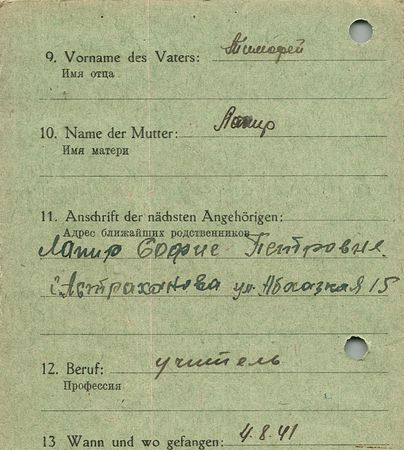 9. Vorname des Vaters: Тимофей
Имя отца
10. Name der Mutter: Лапир
Имя матери
11. Anschrift der nächsten Angehörigen:
Адрес ближайших родственников
Лапир Софие Петровне
г. Астраханова ул. Абхазная 15
12. Beruf: учитель
Профессия
13 Wann und wo gefangen: 4.8.41